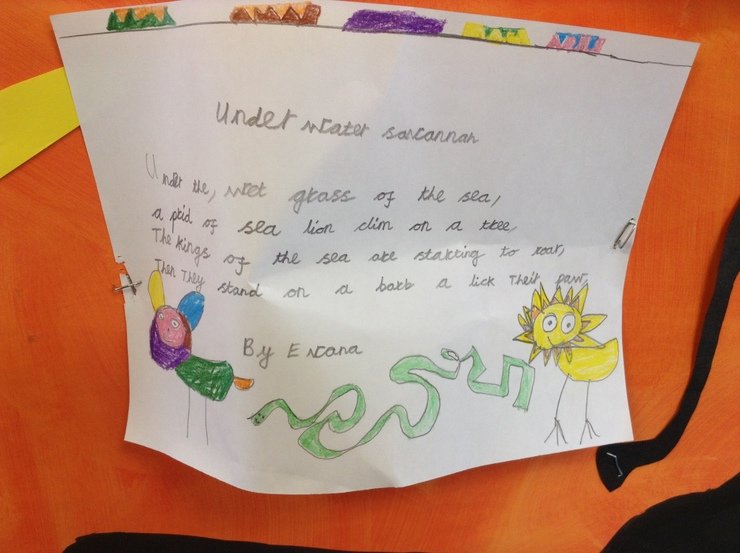 Under water savannah
Under the, wet grass of the sea,
a prid of sea lion clim on a tree,
The Kings of the sea are starting to roar,
Then They stand on a barb a lick Their paw,
By